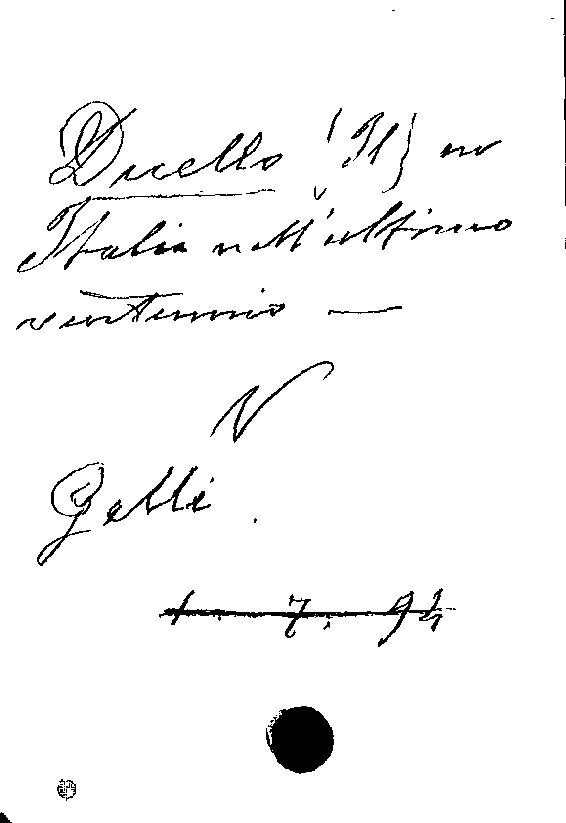 Duello (Il) in
Italia nell'ultimo
ventennio —
V
Gelli.
1. 7. 94